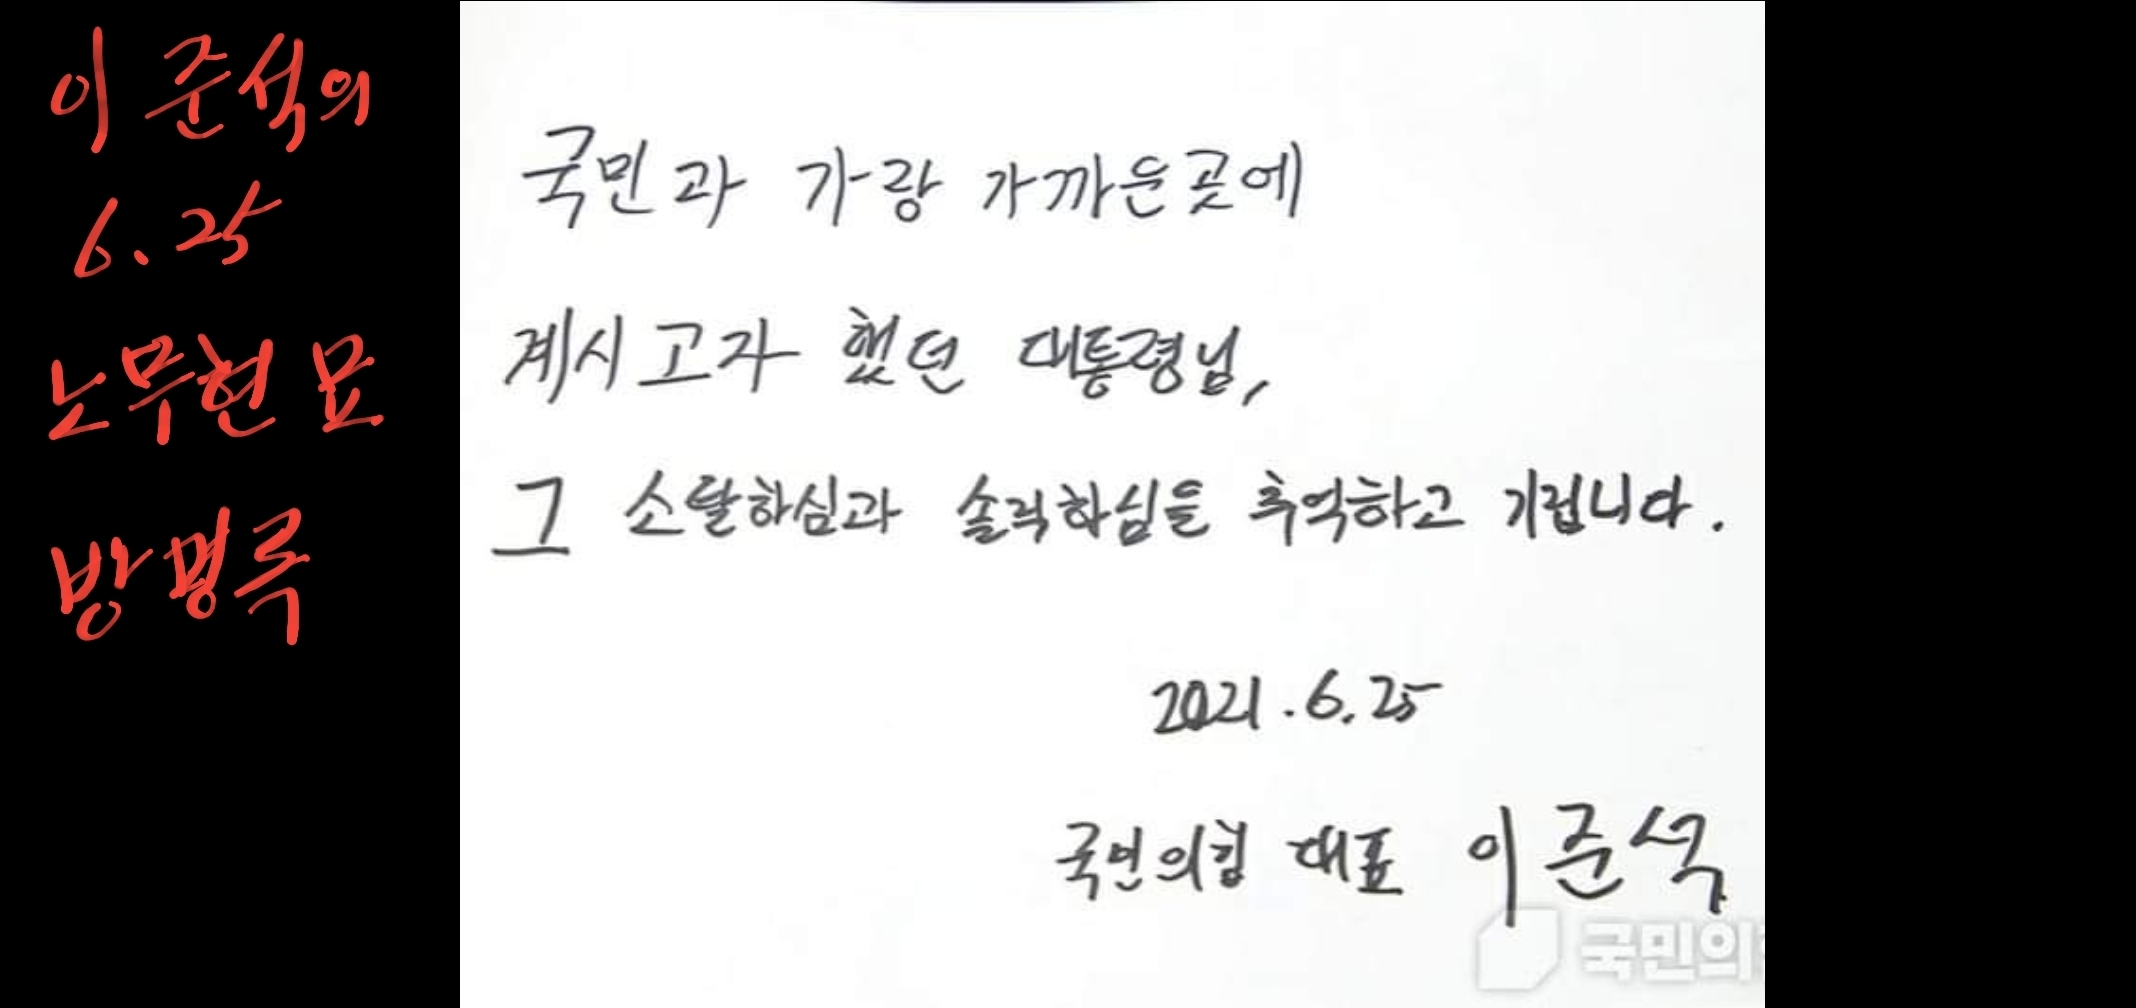 이준석의
6.25
노무현 묘
방명록
국민과 가랑 가까운곳에
계시고자 했던 대통령님,
그 소탈하심과 솔직하심을 추억하고 기립니다.
2021.6.25
국민의힘 대표 이준석
국민의힘